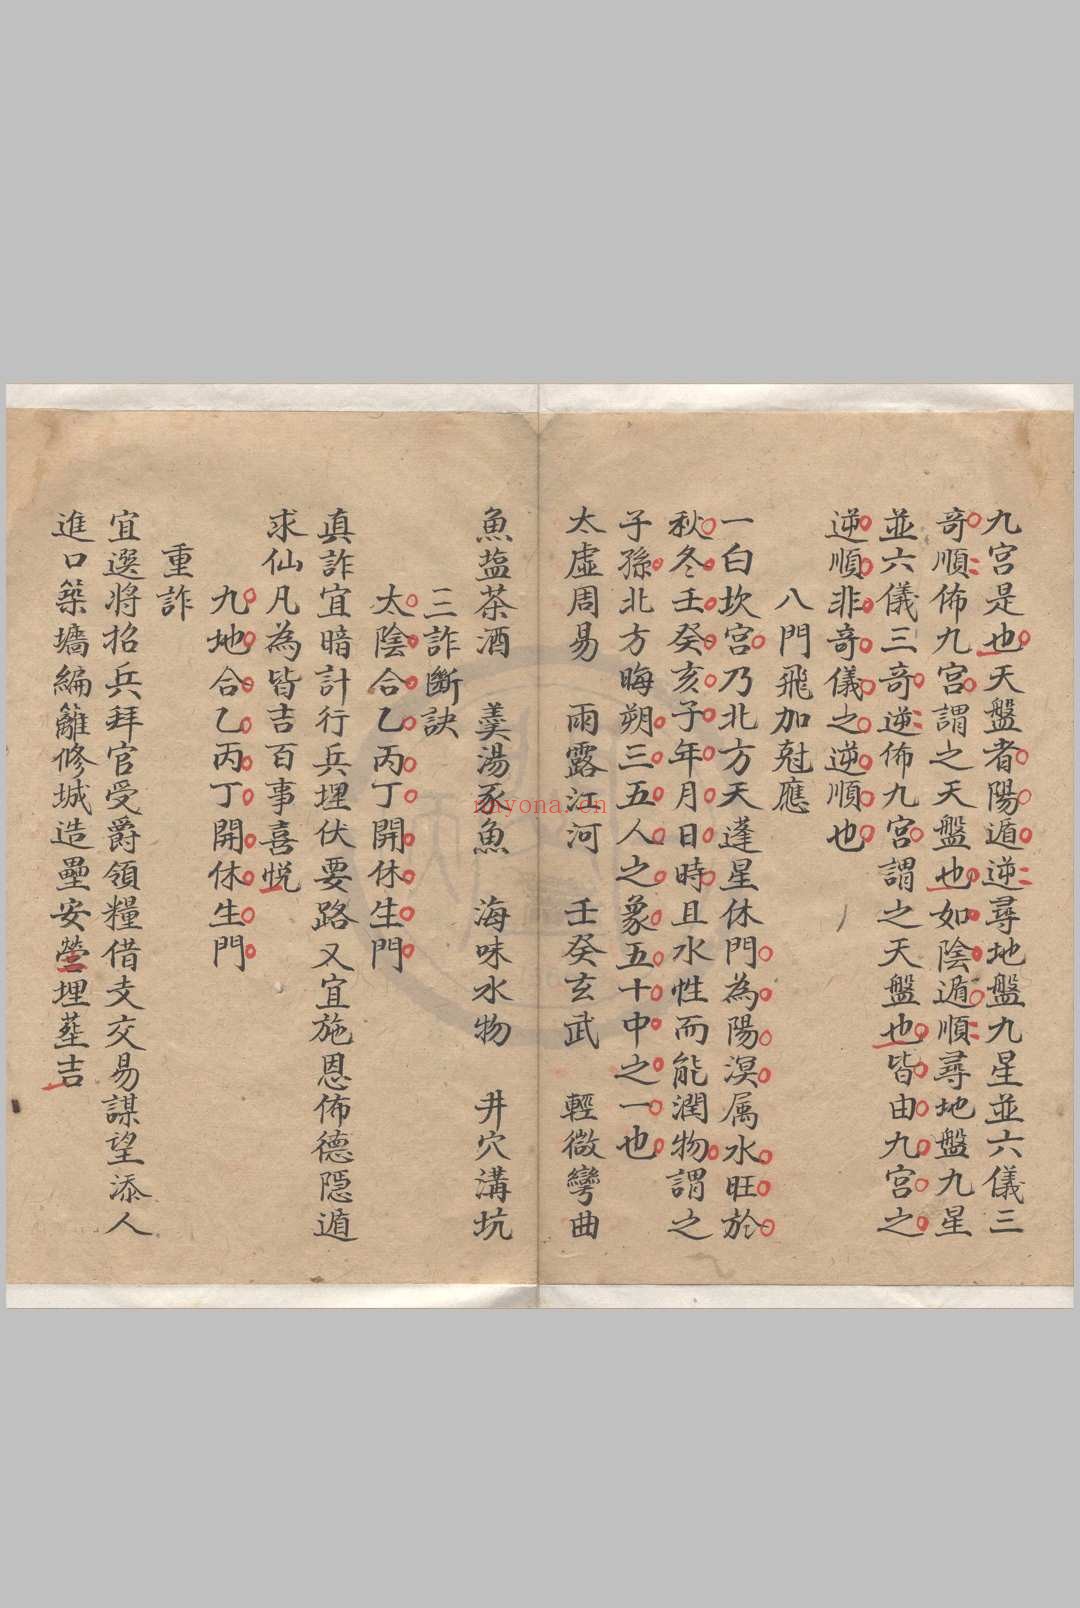 九宮是也天盤者陽遁逆尋地盤九星並六儀三
奇順佈九宮謂之天盤也如陰遁順尋地盤九星
並六儀三奇逆佈九宮謂之天盤也皆由九宮之
逆順非奇儀之逆順也
八門飛加尅應
一白坎宮乃北方天蓬星休門為陽溟属水旺於
秋冬壬癸亥子年月日時且水性而能潤物謂之
子孫北方晦朔三五人之象五十中之一也
太虛周易 雨露江河 壬癸玄武 輕微彎曲
魚塩茶酒 羹湯豕魚 海味水物 井穴溝坑
三詐斷訣
太陰合乙丙丁開休生門
真詐宜暗計行兵埋伏要路又宜施恩佈德隱遁
求仙凡為皆吉百事喜悅
九地合乙丙丁開休生門
重詐
宜選將招兵拜官受爵領糧借支交易謀望添人
進口築墻編籬修城造壘安營埋塟吉
myona.cn